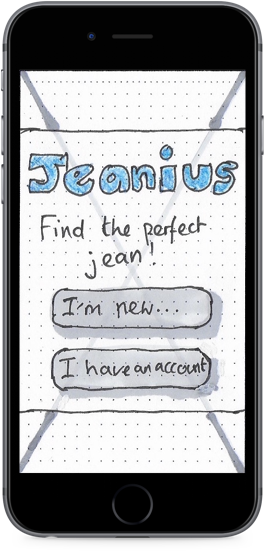 Jeanius
Find the perfect
jean!
I'm new...
I have an account